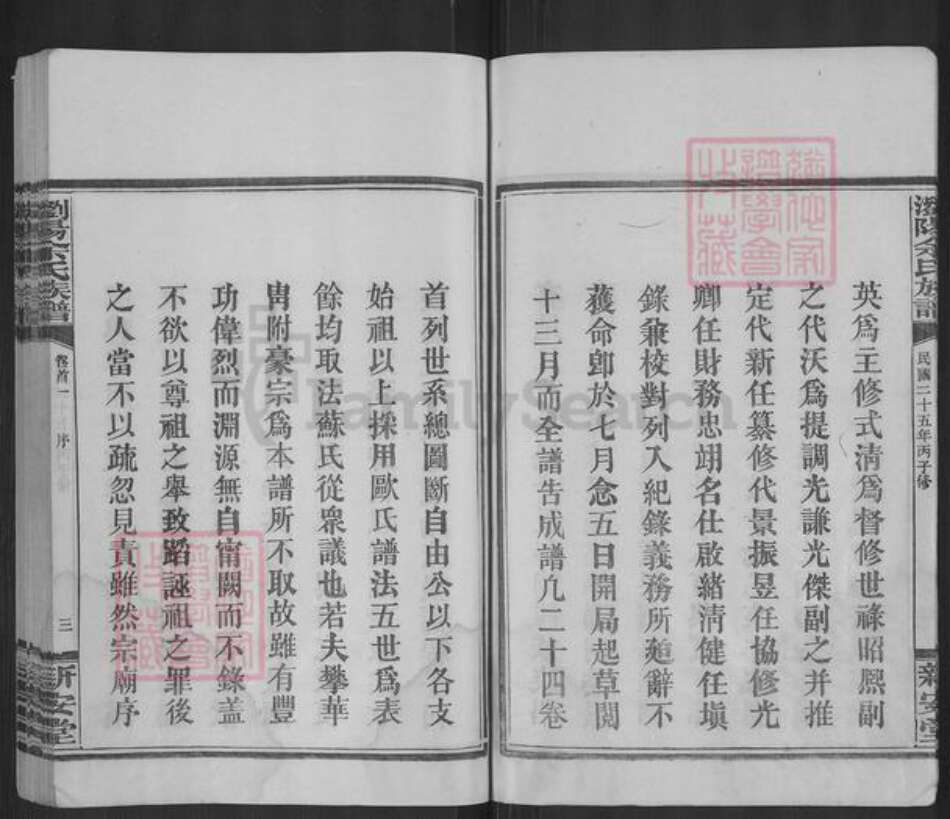 瀏陽余氏族譜
民國二十五年丙子修
新安堂
英爲主修式淸爲督修世祿昭熙副
之代沃爲提調光謙光傑副之并推
定代新任纂修代景振昱任協修光
卿任財務忠翊名仕啟緒淸健任塡
錄兼校對列入紀錄義務所廹辭不
獲命卽於七月念五日開局起草閱
十三月而全譜告成譜凡二十四卷
首列世系總圖斷自由公以下各支
始祖以上採用歐氏譜法五世爲表
餘均取法蘇氏從衆議也若夫攀華
冑附豪宗爲本譜所不取故雖有豐
功偉烈而淵源無自甯闕而不錄蓋
不欲以尊祖之舉致蹈誣祖之罪後
之人當不以疏忽見責雖然宗廟序
瀏陽余氏族譜
卷首一
序
三
新安堂
FamilySearch